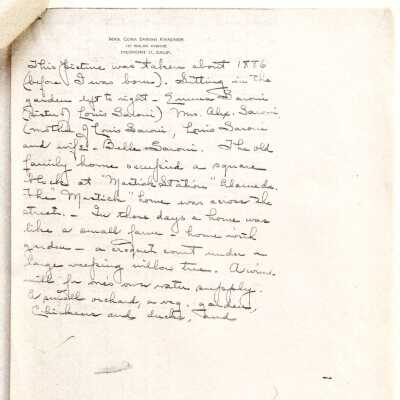 MRS. CORA SARONI KRADNER
PIEDMONT 11, CALIF.
This picture was taken about 1886
(before I was born). Sitting in the
garden left to right - Emma Saroni
(sister of Louis Saroni) Mrs. Alex. Saroni
(mother of Louis Saroni, Louis Saroni
and wife - Belle Saroni. The old
family home occupied a square
block at "Mastick Station" Alameda.
The "Mastick" home was across the
street. - In those days a home was
like a small farm - home with
garden - a croquet court under a
large weeping willow tree. A wind
mill for ones own water supply.
A small orchard, a veg. garden,
chickens and ducks, and